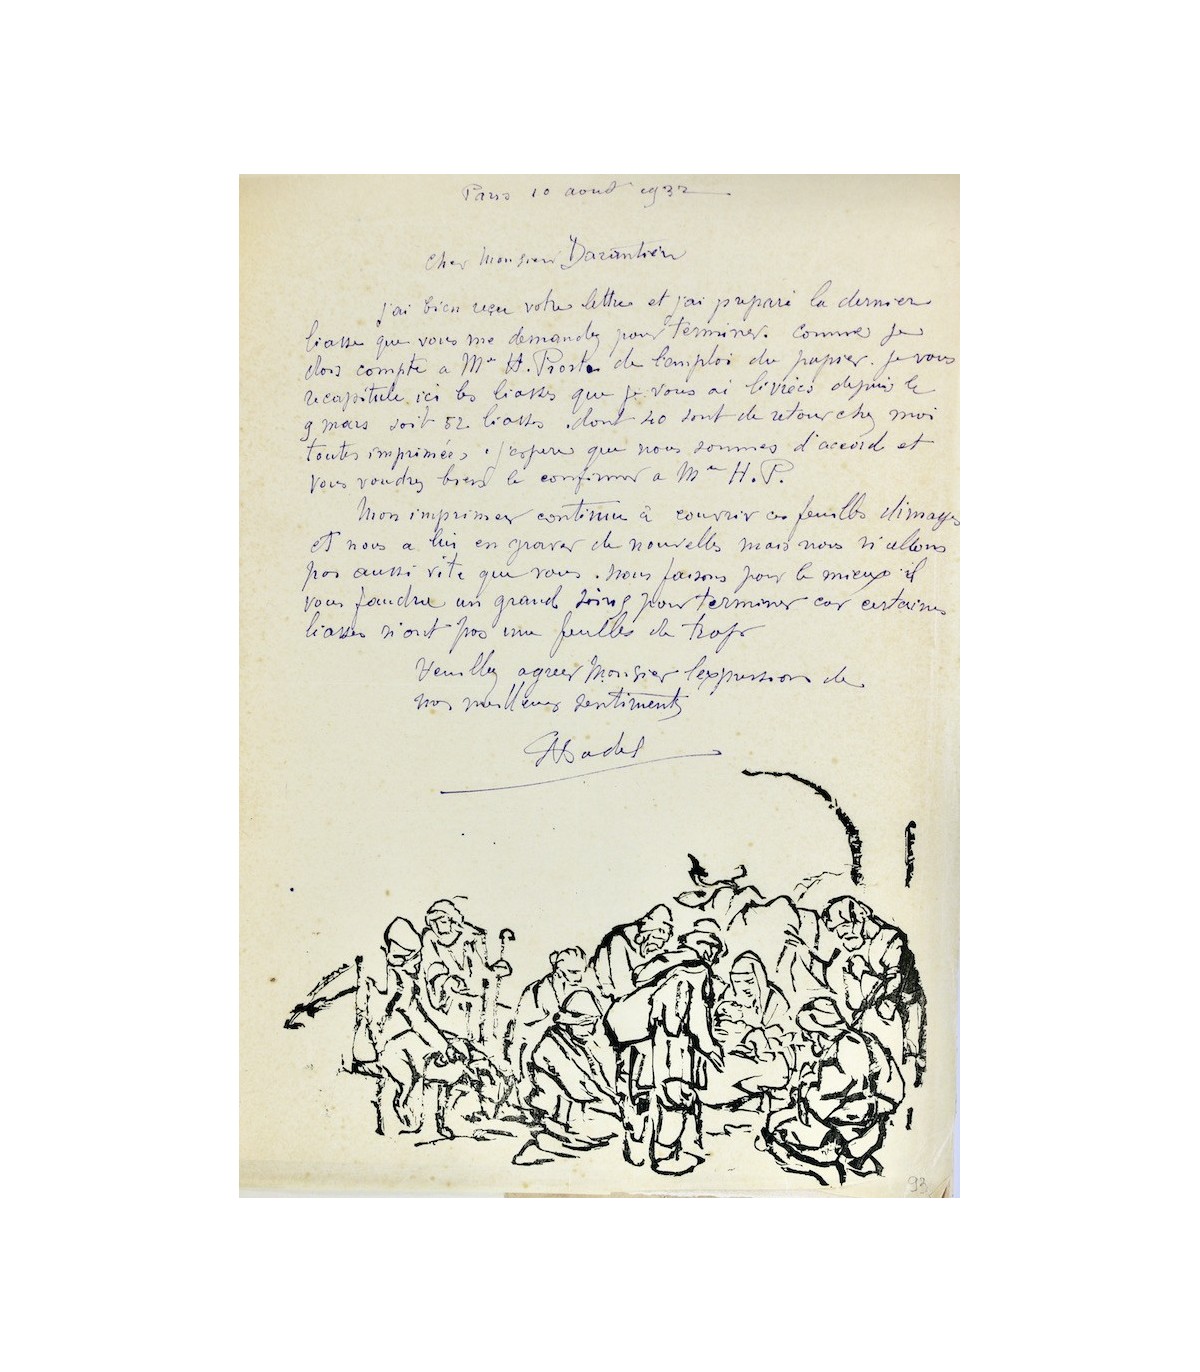 Paris 10 aout 1932
Cher Monsieur Darantière
j'ai bien reçu votre lettre et j'ai preparé la derniere
liasse que vous me demandez pour terminer. Comme je
dois compte a Me H. Proste de l'emploi du papier. je vous
recapitule ici les liasses que je vous ai livrées depuis le
9 mars soit 52 liasses. dont 40 sont de retour chez moi
toutes imprimées. j'espere que nous sommes d'accord et
vous voudrez bien le confirmer a Me H. P.
Mon imprimeur continue à couvrir ces feuilles d'images
et nous a lui en graver de nouvelles mais nous n'allons
pas aussi vite que vous. nous faisons pour le mieux il
vous faudra un grand soing pour terminer car certaines
liasses n'ont pas une feuilles de trop
Veuillez agreer Monsieur l'expression de
nos meilleurs sentiments
93